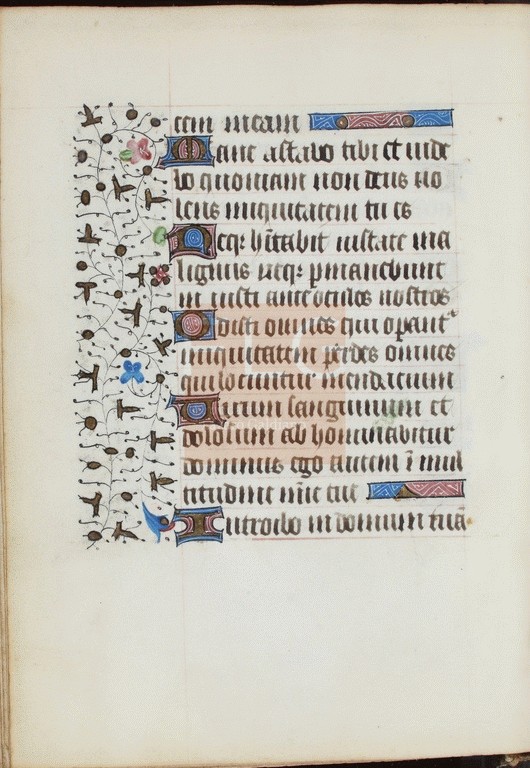 cem meam
Mane astabo tibi et uide
bo quoniam non deus uo
lens iniquitatem tu es
Neqz hītabit iuxta te ma
lignus neqz pmanebunt
iniusti ante oculos nostros
Odisti omnes qui opant
iniquitatem perdes omnes
qui locuntur mendacium
Uirum sanguinum et
dolosum abhominabitur
dominus ego autem ī mul
titudine mīe tue
Introibo in domum tuā